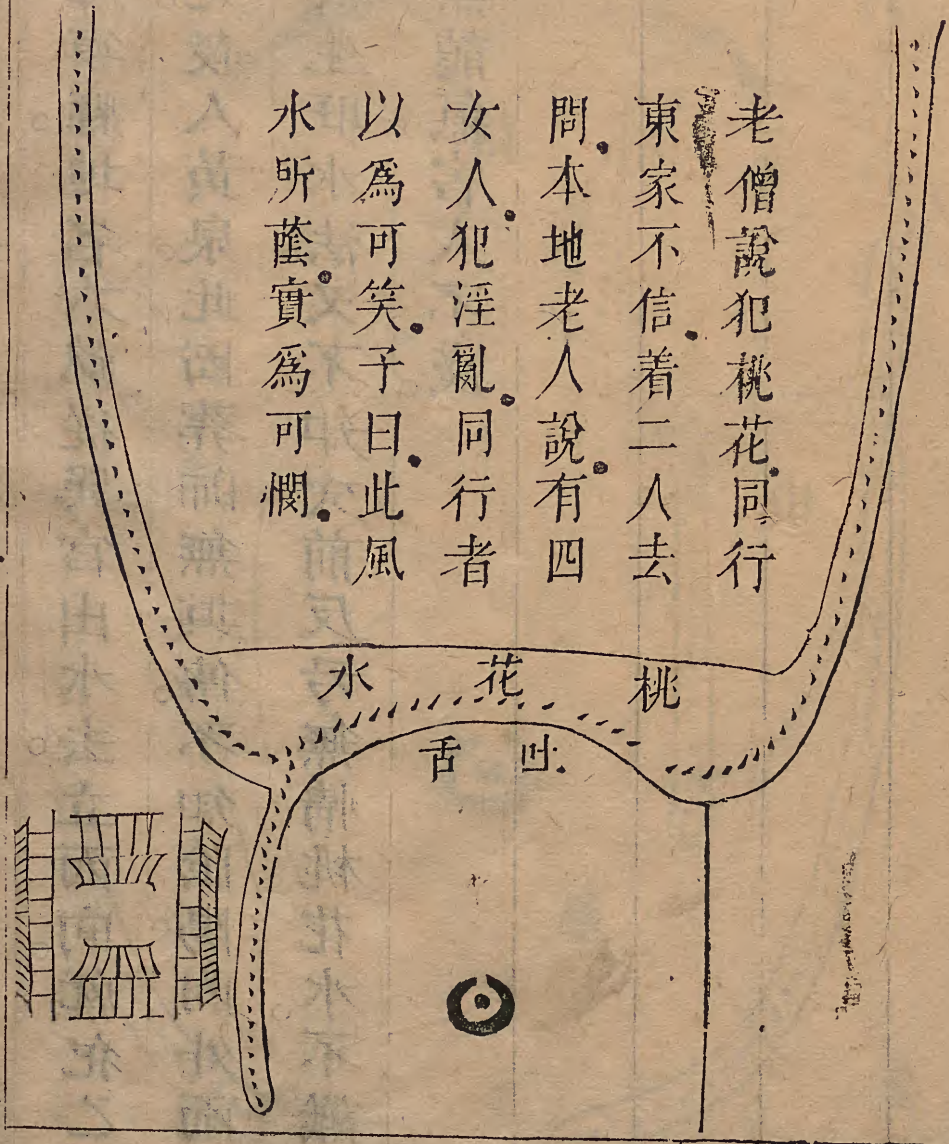 老僧說犯桃花同行
東家不信着二人去
問本地老人說有四
女人犯淫亂同行者
以為可笑子曰此風
水所蔭實為可憫
桃花水
吐舌